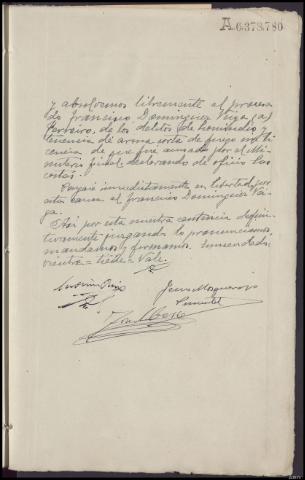 A.6.378.780
y absolvemos libremente al procesa
do Francisco Dominguez Veiga (a)
Ferreiro, de los delitos de homicidio y
tenencia de arma corta de fuego sin li
cencia de que fue acusado por el Mi
nisterio fiscal declarando de oficio las
costas.
Pongase inmediatamente en libertad por
esta causa al Francisco Dominguez Vei
ga.
Asi por esta nuestra sentencia defini
tivamente juzgando lo pronunciamos,
mandamos y firmamos. Enmendado
Vale.